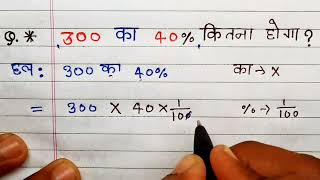 Q.* 300 का 40% कितना होगा ?
हल: 300 का 40% का → ×
= 300 × 40 × 1/100 % → 1/100